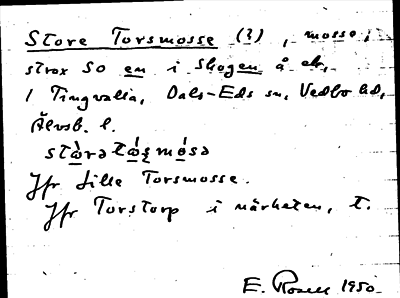 Store Torsmosse (?), mosse,
strax SO en i skogen å ek.
1 Tingvalla, Dals-Eds sn, Vedbo hd,
Älvsb. l.
Jfr Lille Torsmosse.
Jfr Torstorp i närheten, t.
E. Rosell 1950.